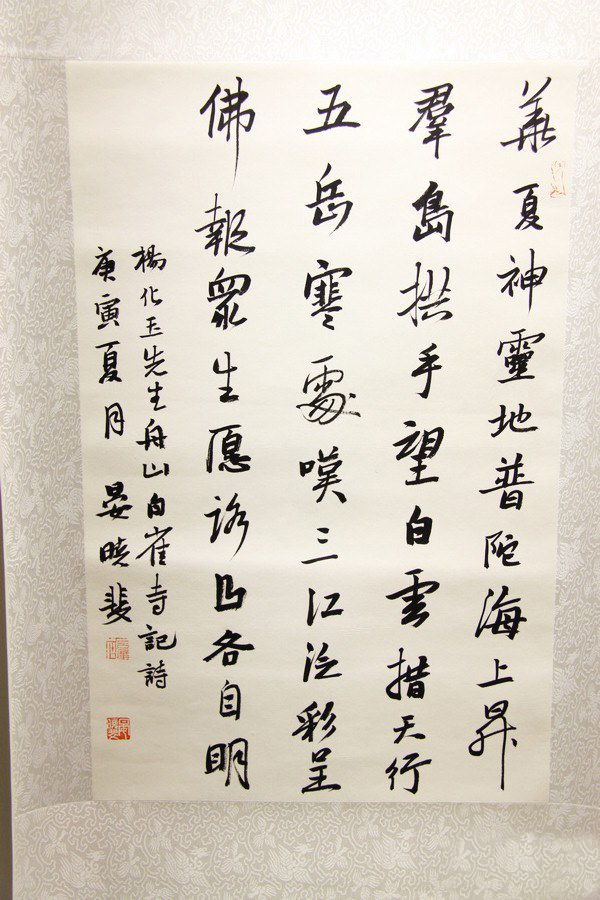 華夏神靈地普陀海上昇
羣島拱手望白雲措天行
五岳寒處嘆三江泛彩呈
佛報眾生愿各自明
楊化玉先生舟山白雀寺記詩
庚寅夏月 晏曉斐